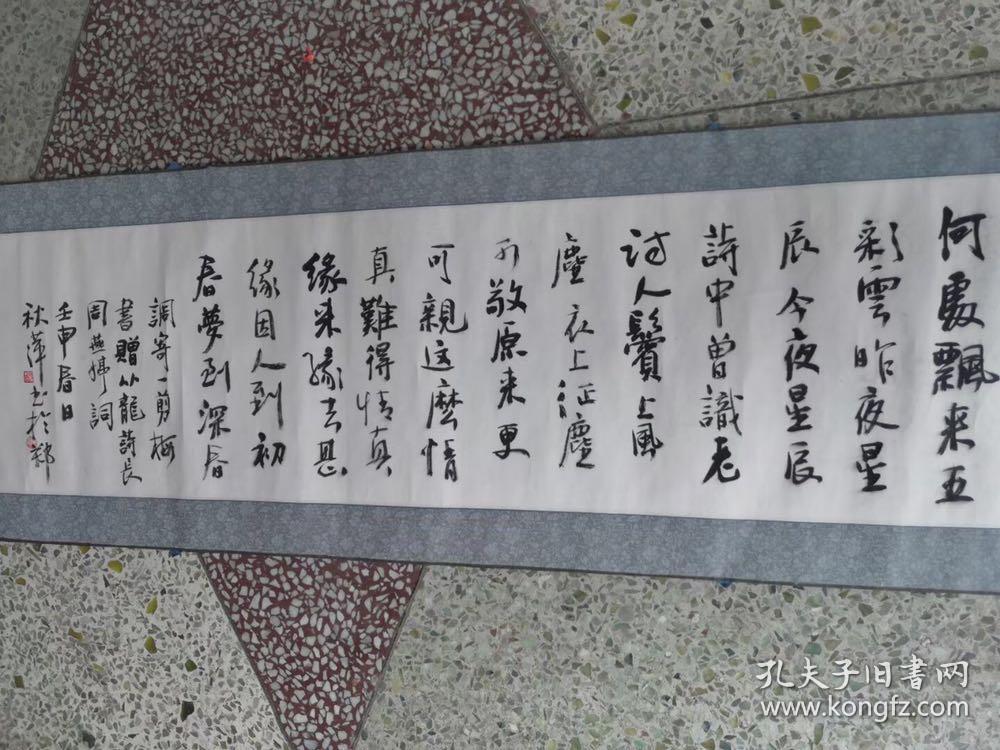 何處飄来五
彩雲昨夜星
辰今夜星辰
詩中曾識老
诗人鬢上風
塵衣上征塵
可敬原来更
可親这麽情
真難得情真
缘来缘去甚
缘因人到初
春夢到深春
調寄一剪梅
書贈從龍詩長
周燕婷詞
壬申春日
秋萍书於鄭
孔夫子旧书网
www.kongfz.com